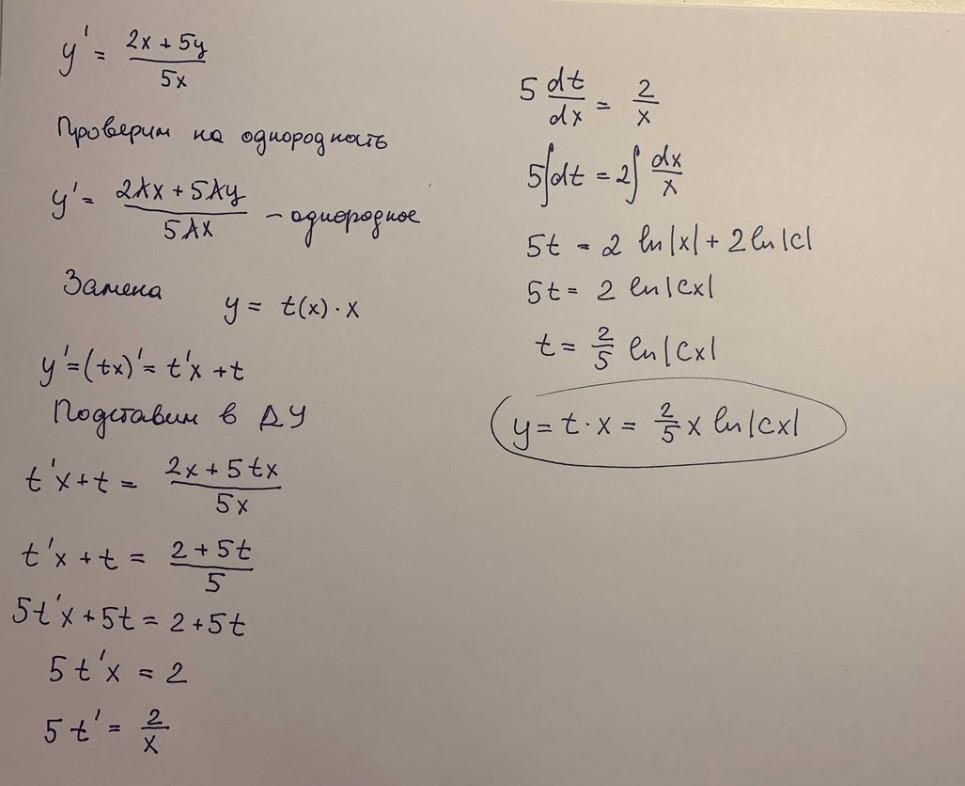 y' = (2x + 5y)/(5x)
Проверим на однородность
y' = (2λx + 5λy)/(5λx) – однородное
Замена y = t(x) · x
y' = (tx)' = t'x + t
Подставим в ДУ
t'x + t = (2x + 5tx)/(5x)
t'x + t = (2 + 5t)/5
5t'x + 5t = 2 + 5t
5t'x = 2
5t' = 2/x
5 dt/dx = 2/x
5∫dt = 2∫dx/x
5t = 2 ln|x| + 2 ln|c|
5t = 2 ln|cx|
t = 2/5 ln|cx|
y = t · x = 2/5 x ln|cx|